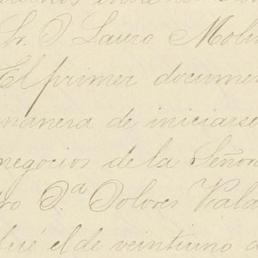 Sr. D Lauro Molin
El primer documen
manera de iniciarse
negocios de la Señora
ro Da Dolores Vala
fué el de veintiuno d